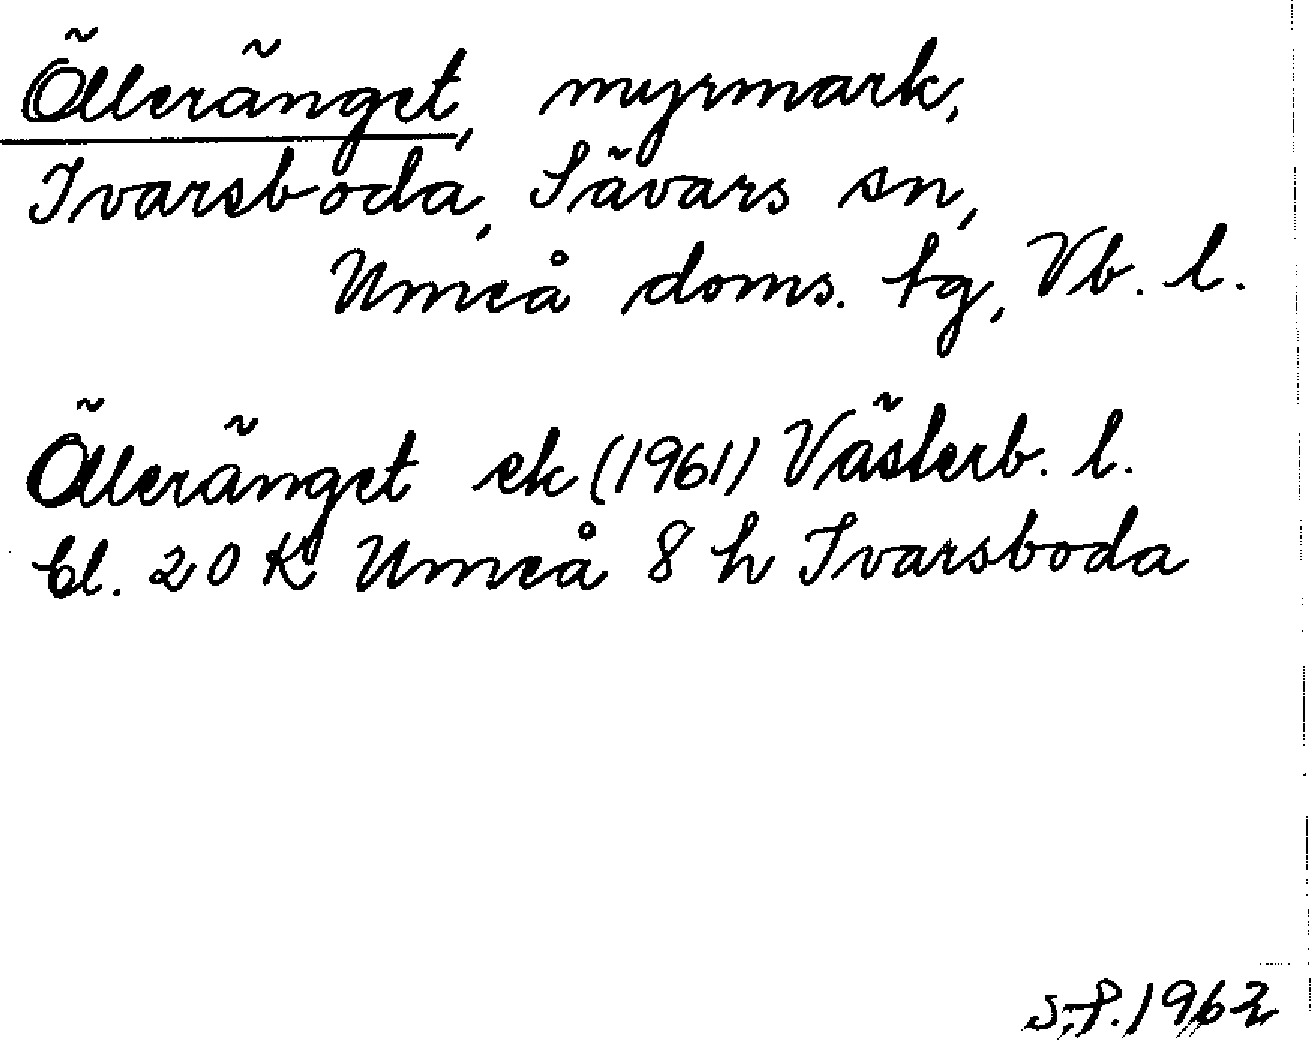 Ölleränget, myrmark,
Ivarsboda, Sävars sn,
Umeå doms. tg, Vb. l.
Ölleränget ek (1961) Västerb. l.
bl. 20 K Umeå 8 h Ivarsboda
S.P. 1962